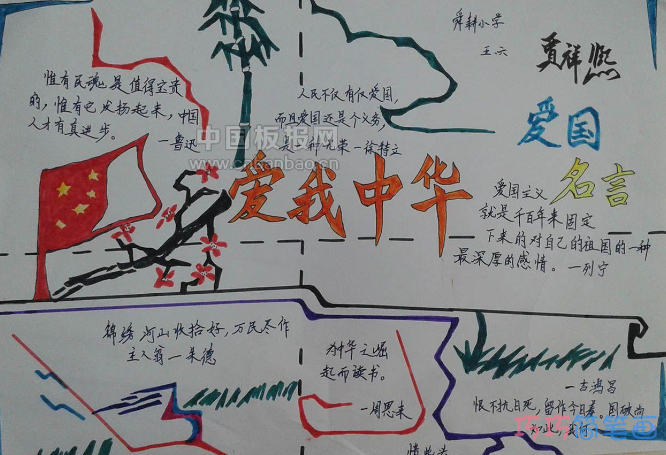 舜耕小学
五六
贾祥熙
惟有民魂是值得宝贵
的，惟有它发扬起来，中国
人才有真进步。
—鲁迅
人民不仅有权爱国，
而且爱国还是个义务，
是一种光荣—徐特立
中国板报网
www.chinanbao.cn
爱国
名言
爱我中华
爱国主义
就是千百年来固定
下来的对自己的祖国的一种
最深厚的感情。—列宁
锦绣河山收拾好，万民尽作
主人翁—朱德
为中华之崛
起而读书。
—周恩来
—吉鸿昌
恨不抗日死，留作今日羞。国破尚
如此，我何